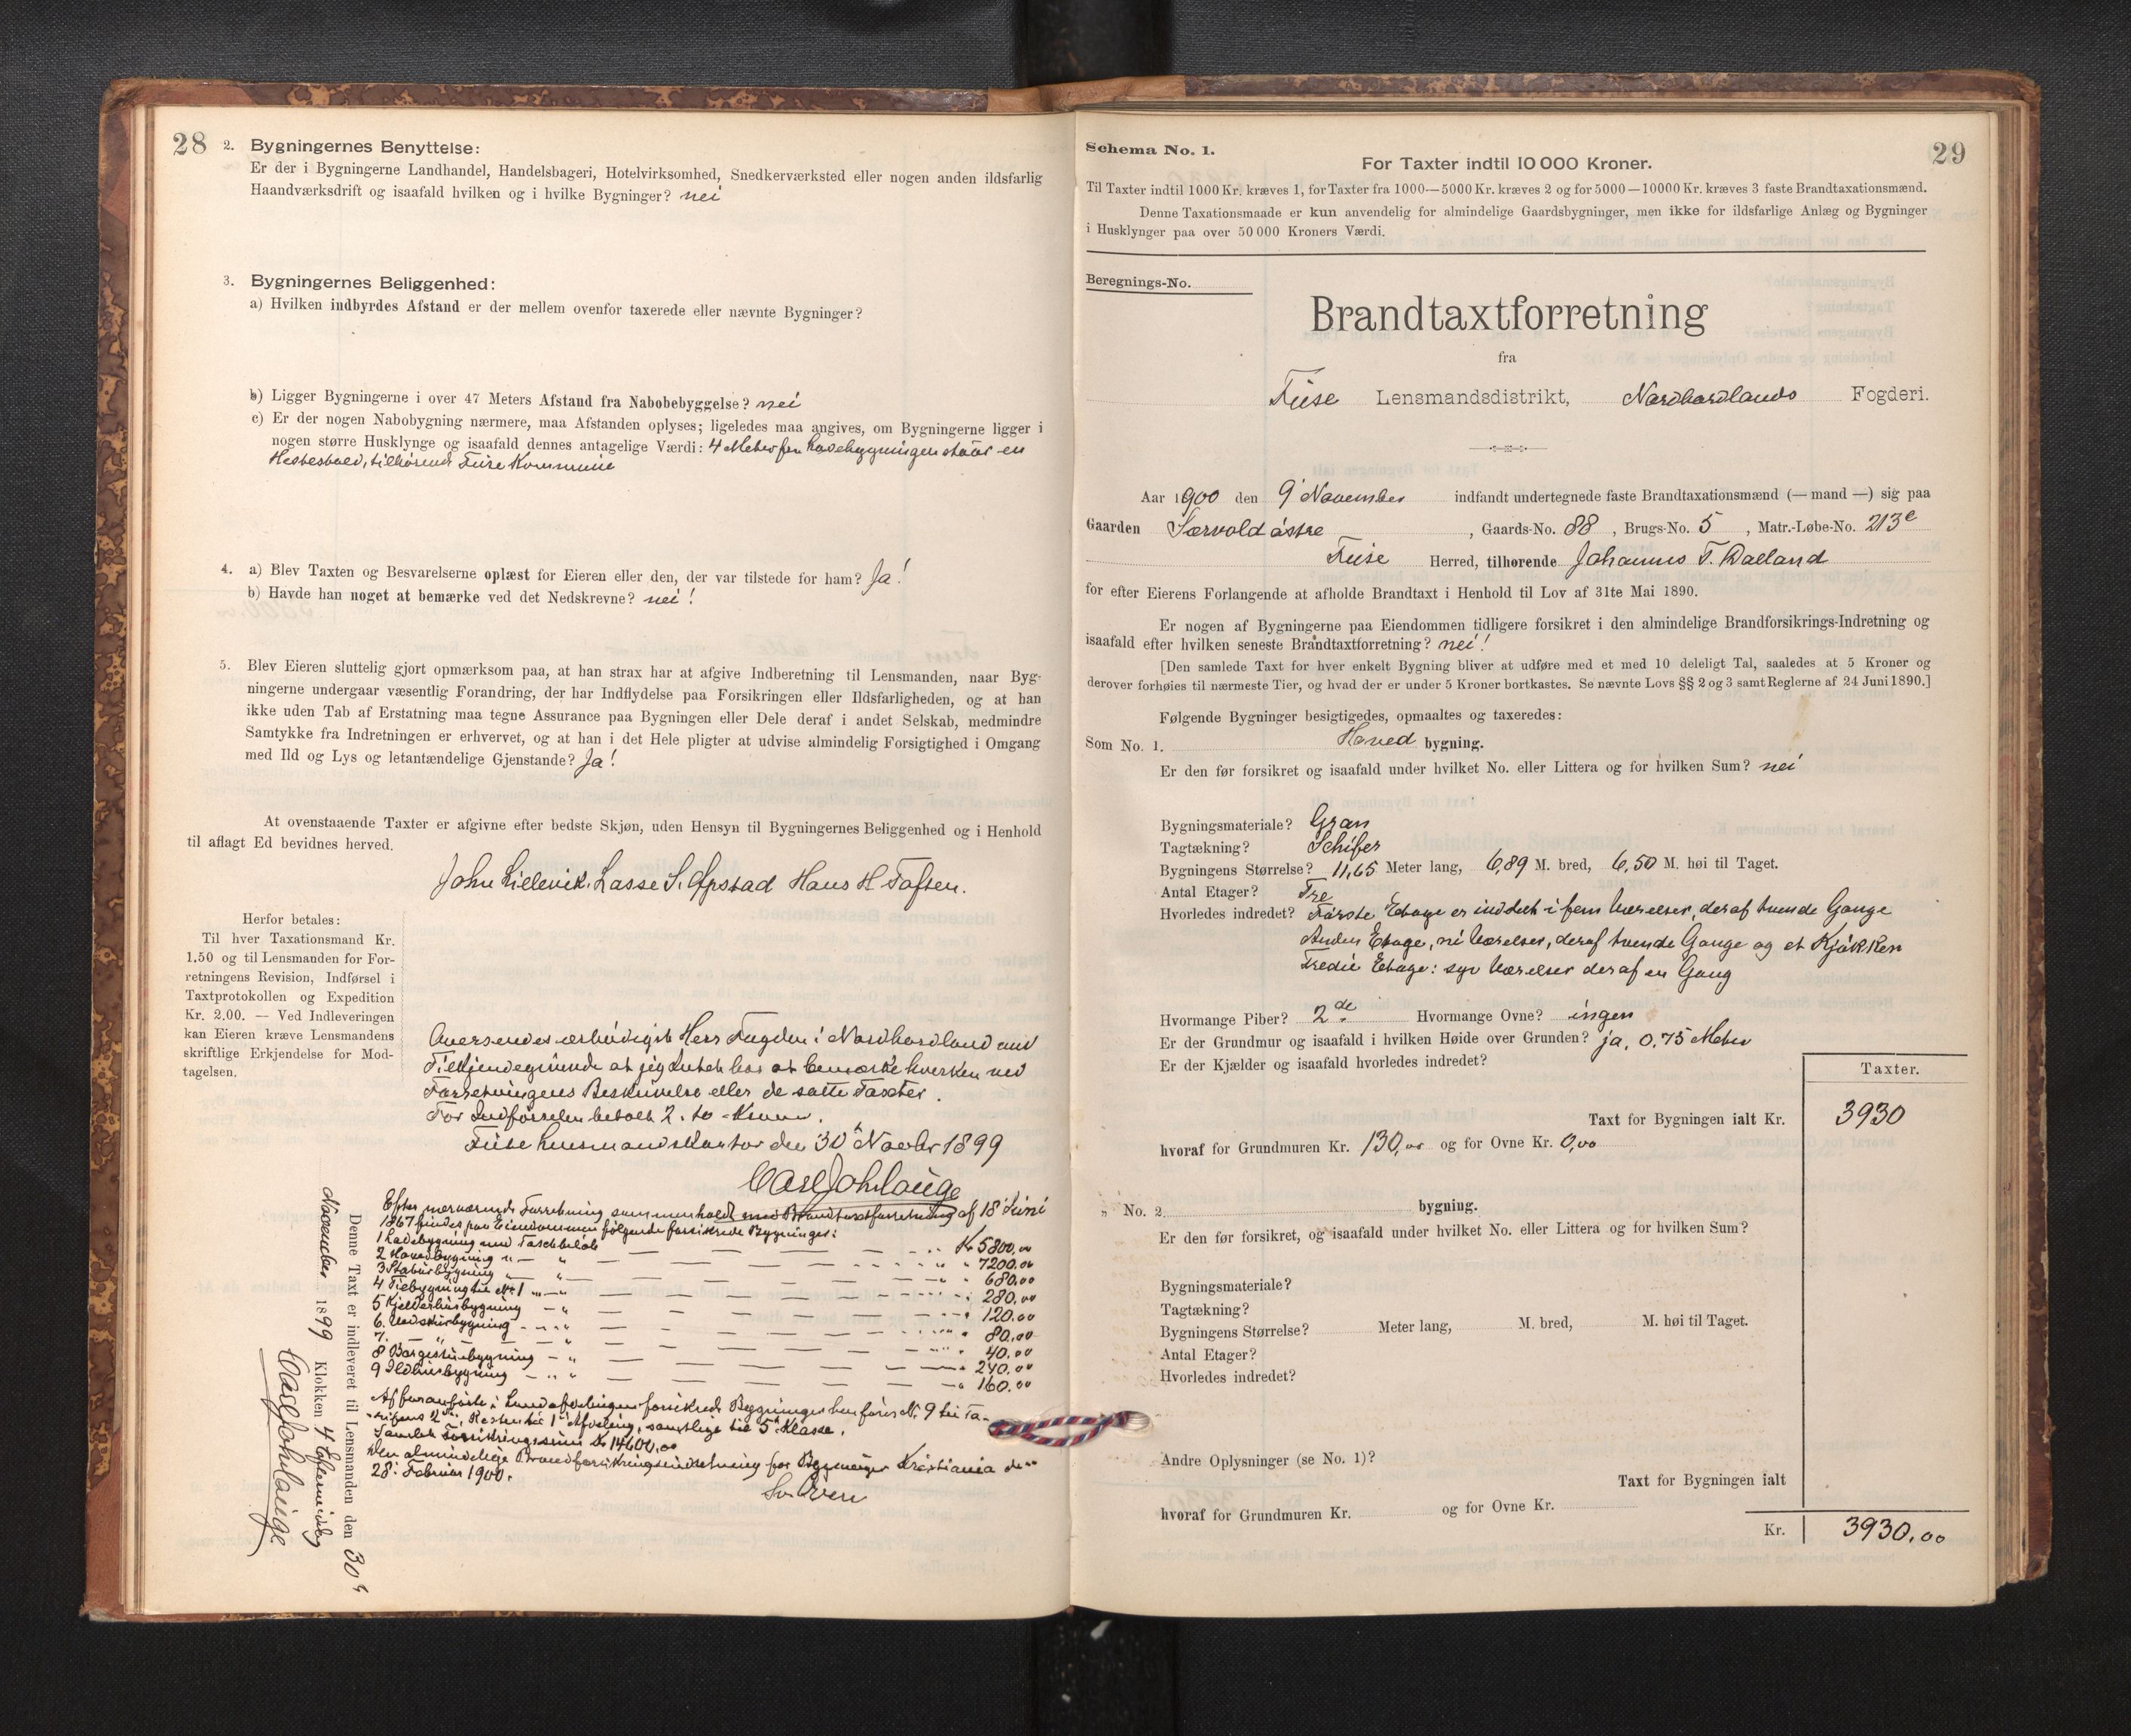 28
2. Bygningernes Benyttelse:
Er der i Bygningerne Landhandel, Handelsbageri, Hotelvirksomhed, Snedkerværksted eller nogen anden ildsfarlig
Haandværksdrift og isaafald hvilken og i hvilke Bygninger? nei
3. Bygningernes Beliggenhed:
a) Hvilken indbyrdes Afstand er der mellem ovenfor taxerede eller nævnte Bygninger?
b) Ligger Bygningerne i over 47 Meters Afstand fra Nabobebyggelse? nei
c) Er der nogen Nabobygning nærmere, maa Afstanden oplyses; ligeledes maa angives, om Bygningerne ligger i
nogen større Husklynge og isaafald dennes antagelige Værdi: 4 Meter fra Ladebygningen staar en
Hestestald, tilhørende Fuse Kommune
4. a) Blev Taxten og Besvarelserne oplæst for Eieren eller den, der var tilstede for ham? Ja!
b) Havde han noget at bemærke ved det Nedskrevne? nei!
5. Blev Eieren sluttelig gjort opmærksom paa, at han strax har at afgive Indberetning til Lensmanden, naar Byg-
ningerne undergaar væsentlig Forandring, der har Indflydelse paa Forsikringen eller Ildsfarligheden, og at han
ikke uden Tab af Erstatning maa tegne Assurance paa Bygningen eller Dele deraf i andet Selskab, medmindre
Samtykke fra Indretningen er erhvervet, og at han i det Hele pligter at udvise almindelig Forsigtighed i Omgang
med Ild og Lys og letantændelige Gjenstande? Ja!
At ovenstaaende Taxter er afgivne efter bedste Skjøn, uden Hensyn til Bygningernes Beliggenhed og i Henhold
til aflagt Ed bevidnes herved.
John Lillevik. Lasse S. Opstad Hans H. Tofsen.
Herfor betales:
Til hver Taxationsmand Kr.
1.50 og til Lensmanden for For-
retningens Revision, Indførsel i
Taxtprotokollen og Expedition
Kr. 2.00. — Ved Indleveringen
kan Eieren kræve Lensmandens
skriftlige Erkjendelse for Mod-
tagelsen.
Oversendes ærbødigst Herr Fogden i Nordhordland med
Tilkjendegivende at jeg Intet har at bemærke hverken ved
Forretningens Beskrivelse eller de satte Taxter.
For Indførselen betalt 2. to Kroner.
Fuse Lensmandskontor den 30 Novbr 1899
Carl Joh Lauge
Efter nærværende Forretning sammenholdt med Brandtaxtforretning af 18 Juni
1867 findes paa Eiendommen følgende forsikrede Bygninger:
1 Ladebygning med Taxtbeløb Kr 5800.00
2 Hovedbygning " 7200.00
3 Stabursbygning " 680.00
4 Tilbygning til No 1 " 280.00
5 Kjelderhusbygning " 120.00
6. Vedskursbygning " 80.00
7. " 40.00
8 Borgestuebygning " 240.00
9 Ildhusbygning " 160.00
Af foranførte i Landafdelingen forsikrede Bygninger henføres No 9 til Ta-
riffens 2den, Resten til 1ste Afdeling, samtlige til 5te Klasse.
Samlet Forsikringssum Kr 14600.00
Den almindelige Brandforsikringsindretning for Bygninger Kristiania den
28. Februar 1900.
Denne Taxt er indleveret til Lensmanden den 30
November 1899 Klokken 4 Eftermiddag
Carl Joh Lauge
29
Schema No. 1.
For Taxter indtil 10 000 Kroner.
Til Taxter indtil 1000 Kr. kræves 1, for Taxter fra 1000—5000 Kr. kræves 2 og for 5000—10000 Kr. kræves 3 faste Brandtaxationsmænd.
Denne Taxationsmaade er kun anvendelig for almindelige Gaardsbygninger, men ikke for ildsfarlige Anlæg og Bygninger
i Husklynger paa over 50 000 Kroners Værdi.
Beregnings-No.
Brandtaxtforretning
fra
Fuse Lensmandsdistrikt, Nordhordlands Fogderi.
Aar 1900 den 9 November indfandt undertegnede faste Brandtaxationsmænd (— mand —) sig paa
Gaarden Særvold østre, Gaards-No. 88, Brugs-No. 5, Matr.-Løbe-No. 213e
Fuse Herred, tilhørende Johannes T. Dalland
for efter Eierens Forlangende at afholde Brandtaxt i Henhold til Lov af 31te Mai 1890.
Er nogen af Bygningerne paa Eiendommen tidligere forsikret i den almindelige Brandforsikrings-Indretning og
isaafald efter hvilken seneste Brandtaxtforretning? nei!
[Den samlede Taxt for hver enkelt Bygning bliver at udføre med et med 10 deleligt Tal, saaledes at 5 Kroner og
derover forhøies til nærmeste Tier, og hvad der er under 5 Kroner bortkastes. Se nævnte Lovs §§ 2 og 3 samt Reglerne af 24 Juni 1890.]
Følgende Bygninger besigtigedes, opmaaltes og taxeredes:
Som No. 1. Hoved bygning.
Er den før forsikret og isaafald under hvilket No. eller Littera og for hvilken Sum? nei
Bygningsmateriale? Gran
Tagtækning? Schifer
Bygningens Størrelse? 11,65 Meter lang, 6,89 M. bred, 6,50 M. høi til Taget.
Antal Etager? Tre
Hvorledes indredet? Første Etage er inddelt i fem Værelser, deraf tvende Gange
Anden Etage, ni Værelser, deraf tvende Gange og et Kjøkken
Tredie Etage: syv Værelser deraf en Gang
Hvormange Piber? 2de Hvormange Ovne? ingen
Er der Grundmur og isaafald i hvilken Høide over Grunden? ja, 0.75 Meter
Er der Kjælder og isaafald hvorledes indredet?
Taxter.
Taxt for Bygningen ialt Kr. 3930
hvoraf for Grundmuren Kr. 130,00 og for Ovne Kr. 0,00
" No. 2 bygning.
Er den før forsikret, og isaafald under hvilket No. eller Littera og for hvilken Sum?
Bygningsmateriale?
Tagtækning?
Bygningens Størrelse? Meter lang, M. bred, M. høi til Taget.
Antal Etager?
Hvorledes indredet?
Andre Oplysninger (se No. 1)?
Taxt for Bygningen ialt
hvoraf for Grundmuren Kr. og for Ovne Kr.
Kr. 3930.00